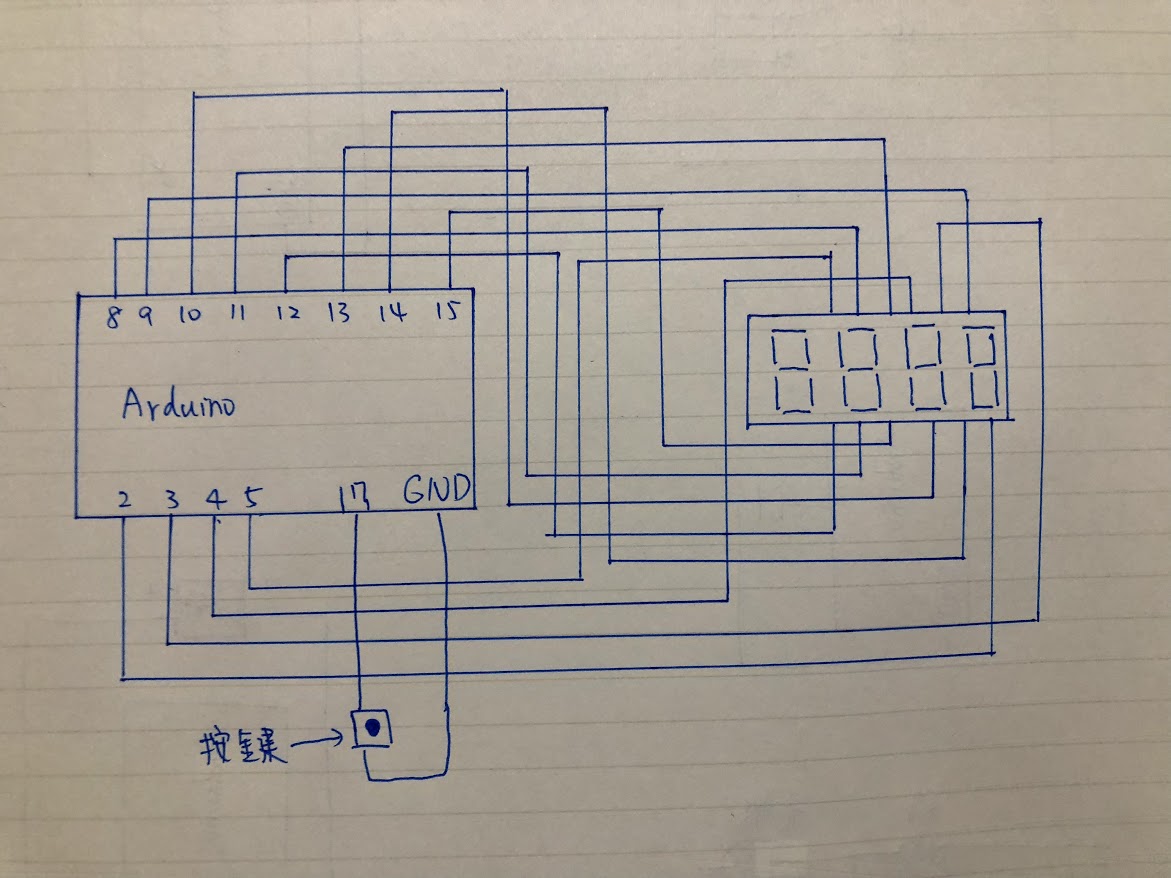 8 9 10 11 12 13 14 15
Arduino
2 3 4 5 17 GND
按键